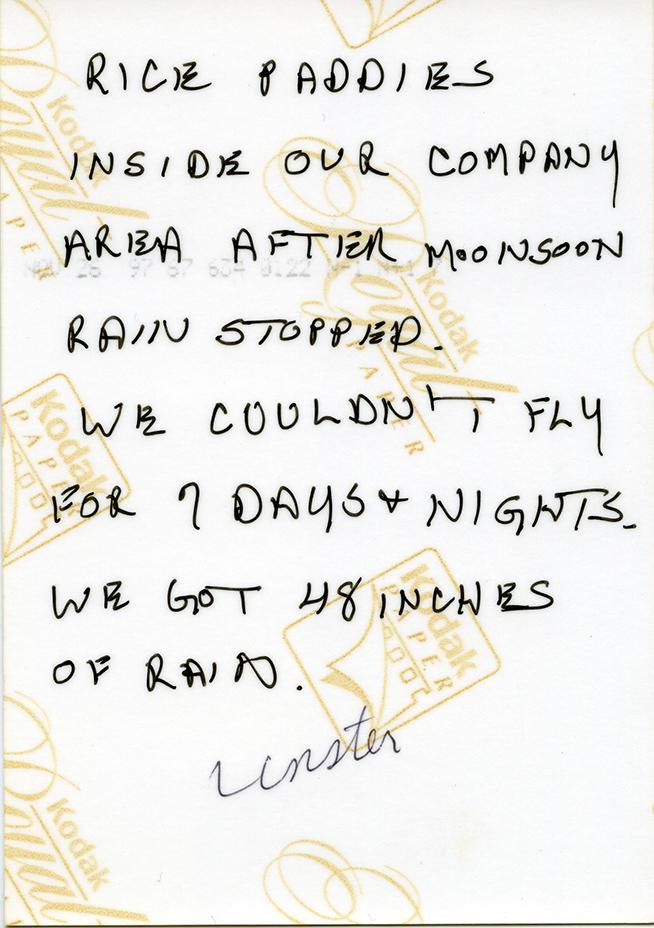 RICE PADDIES
INSIDE OUR COMPANY
AREA AFTER MOONSOON
NOV 26 97 67 634 0122 N-1 N+1
RAIN STOPPED.
WE COULDN'T FLY
FOR 7 DAYS & NIGHTS.
WE GOT 48 INCHES
OF RAIN.
Kodak
Royal
PAPER
Kodak
Royal
PAPER
Kodak
PAPER
Kodak
PAPER
Kodak
Royal